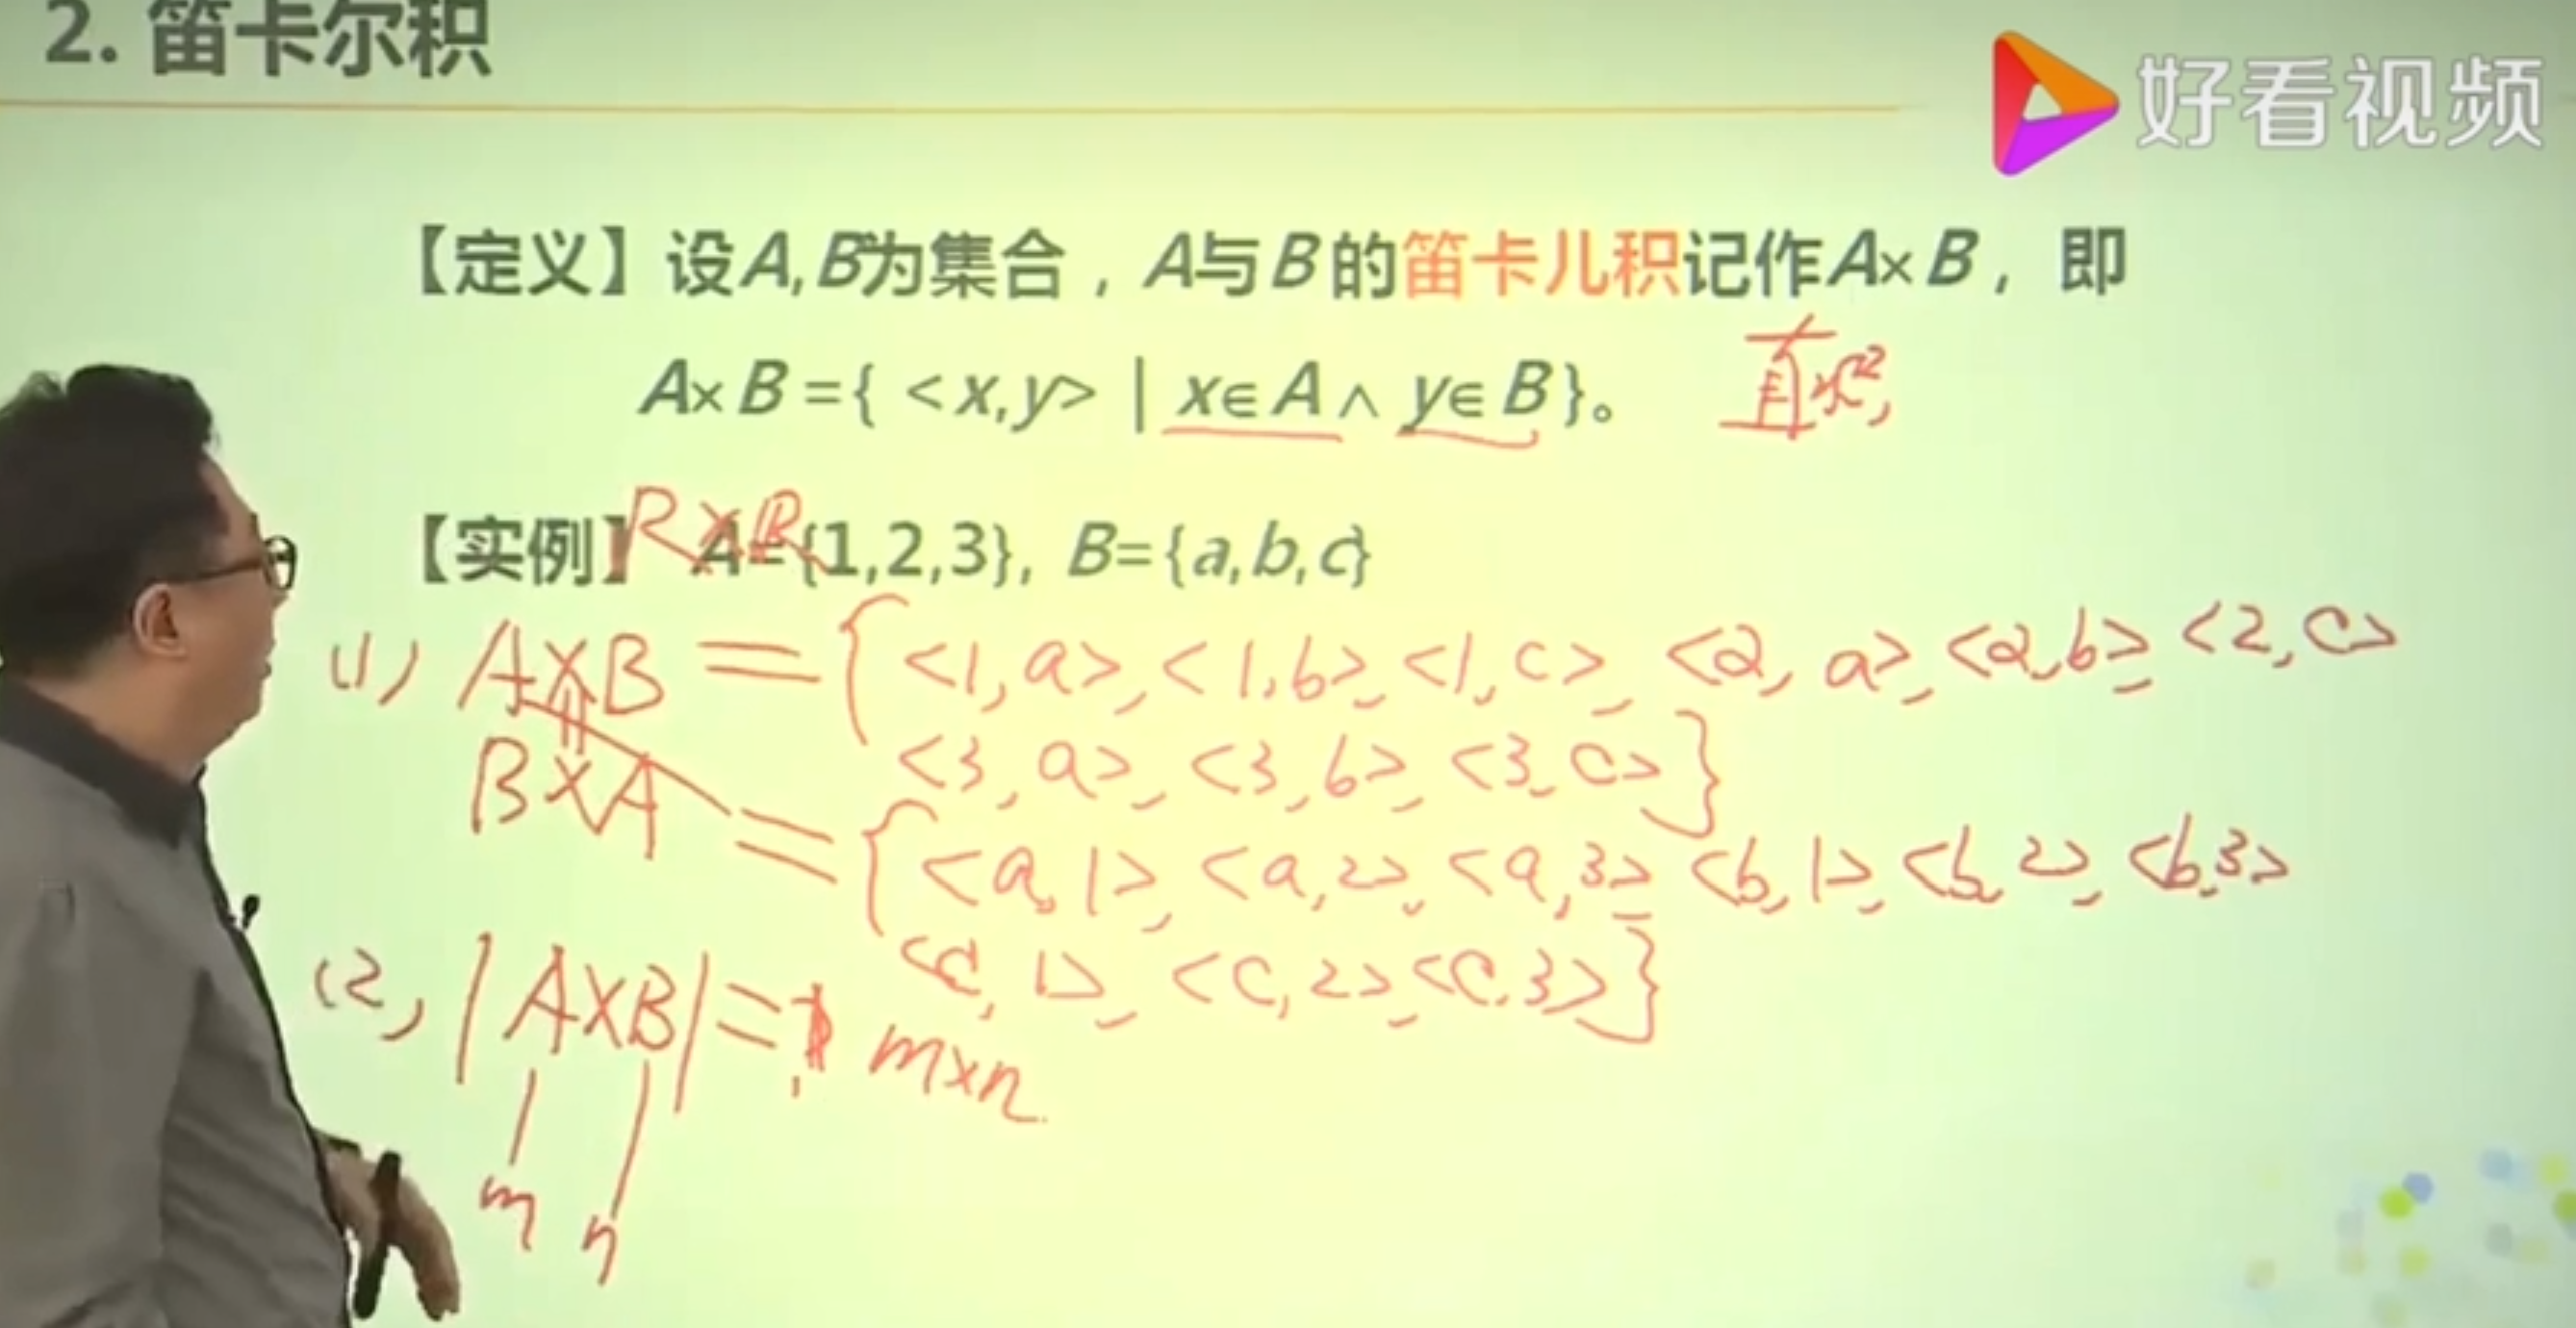 2. 笛卡尔积
好看视频
【定义】设A,B为集合，A与B的笛卡儿积记作A×B，即
A×B={ <x,y> | x∈A∧y∈B}。
直积,
R×R
【实例】A={1,2,3}, B={a,b,c}
(1) A×B = {<1,a>,<1,b>,<1,c>,<2,a>,<2,b>,<2,c>
<3,a>,<3,b>,<3,c>}
B×A = {<a,1>,<a,2>,<a,3>,<b,1>,<b,2>,<b,3>
<c,1>,<c,2>,<c,3>}
(2) |A×B|= m×n
m n